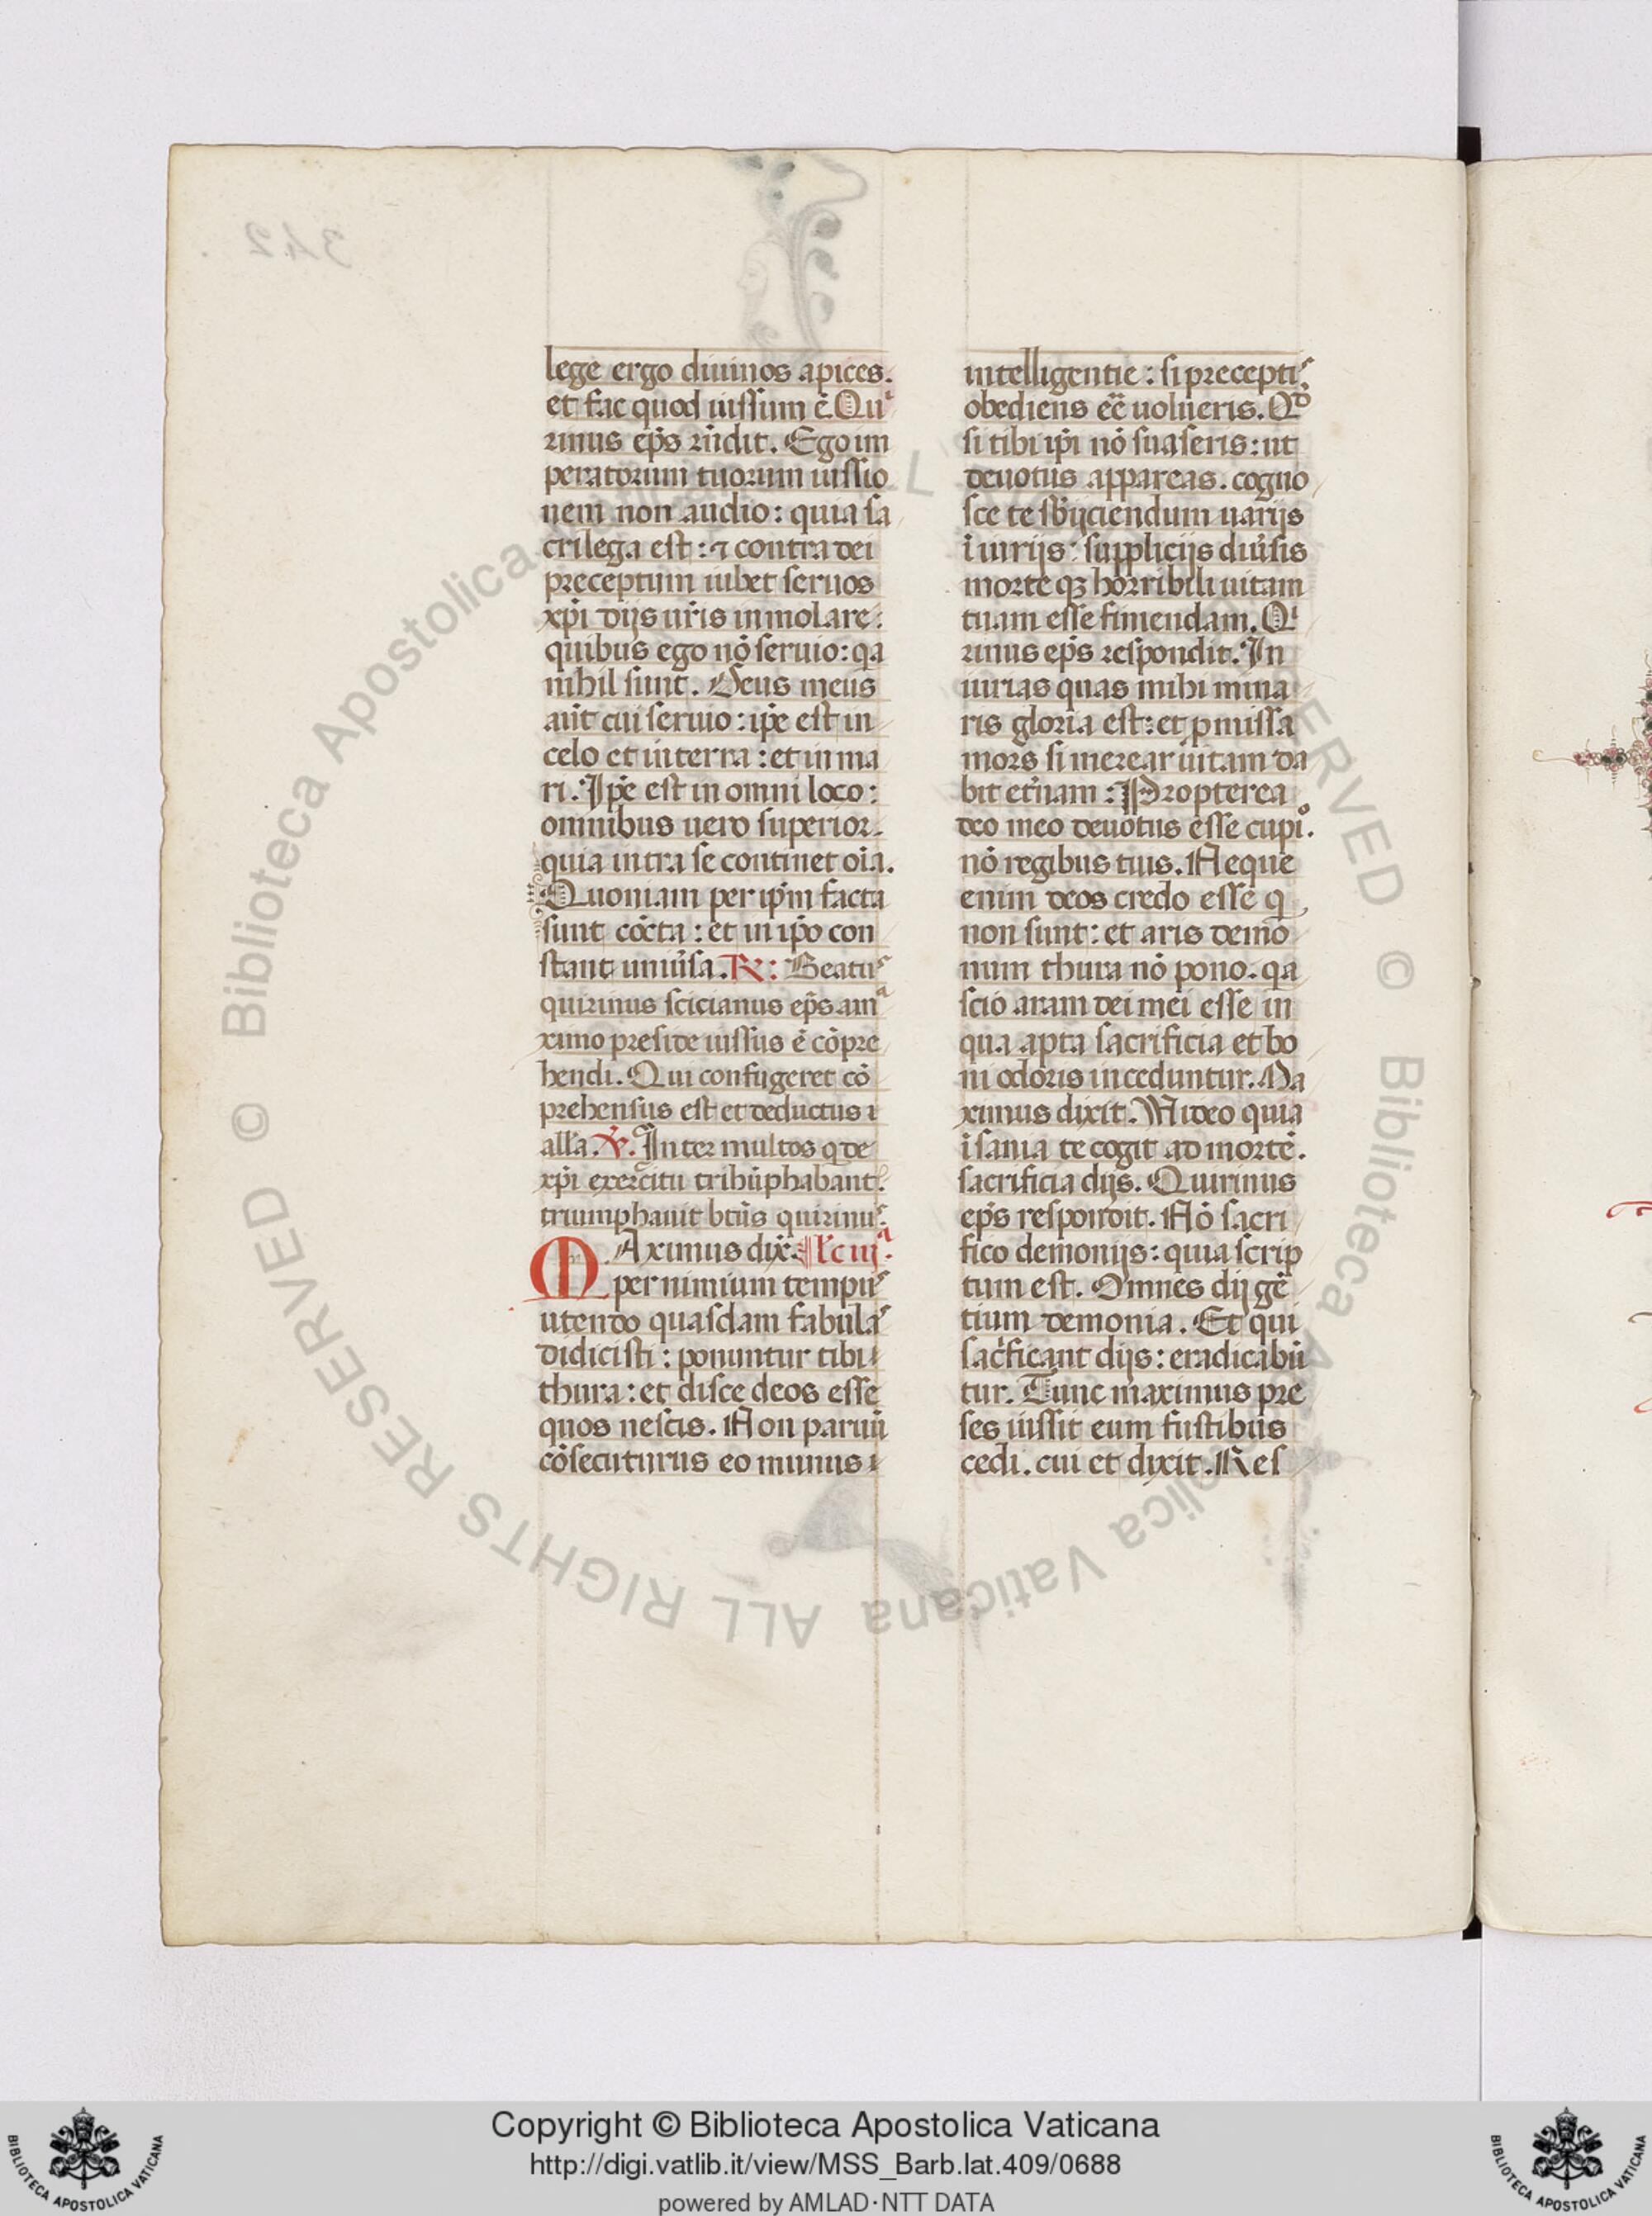 lege ergo diuinos apices.
et fac quod iussum ē. Quiⁱ
rinus ep̄s rn̄dit. Ego im
peratorum tuorum iussio
nem non audio: quia sa
crilega est: ⁊ contra dei
preceptum iubet seruos
xp̄i dijs ur̄is inmolare:
quibus ego nō seruio: qa
nihil sunt. Deus meus
aūt cui seruio: ip̄e est in
celo et in terra: et in ma
ri. Ip̄e est in omni loco:
omnibus uero superior.
quia intra se continet oīa.
Quoniam per ip̄m facta
sunt cūcta: et in ip̄o con
stant uniūsa. R: Beatus
quirinus scicianus ep̄s a mᵃ
ximo preside iussus ē cōpre
hendi. Qui confugeret cō
prehensus est et deductus ı
alla. V. Inter multos q de
xp̄i exercitu tribūphabant.
triumphauit btūs quirinus.
MAximus dix̄. lc̄ iijᵃ.
per nimium tempus
utendo quasdam fabulas
didicisti: ponuntur tibi
thura: et disce deos esse
quos nescis. Non paruū
cōsecuturus eo munus ı
intelligentie: si preceptis
obediens eē uolueris. Qᵈ
si tibi ip̄i nō suaseris: ut
deuotus appareas. cogno
sce te sb̄ijciendum uarijs
īiurijs: supplicijs diūsis
morte qꝫ horribili uitam
tuam esse finiendam. Qⁱ
rinus ep̄s respondit. In
iurias quas mihi mina
ris gloria est: et p̱missa
mors si merear uitam da
bit et̄nam: Propterea
deo meo deuotus esse cupio.
nō regibus tuis. Neque
enim deos credo esse q
non sunt: et aris demo
num thura nō pono. qa
scio aram dei mei esse in
qua apta sacrificia et bo
ni odoris inceduntur. Ma
ximus dixit. Video quia
īsania te cogit ad mortē.
sacrificia dijs. Quirinus
ep̄s respondit. Nō sacri
fico demonijs: quia scrip
tum est. Omnes dij gē
tium demonia. Et qui
sacⁱficant dijs: eradicabū
tur. Tunc maximus pre
ses iussit eum fustibus
cedi. cui et dixit. Res
Copyright © Biblioteca Apostolica Vaticana
http://digi.vatlib.it/view/MSS_Barb.lat.409/0688
powered by AMLAD·NTT DATA